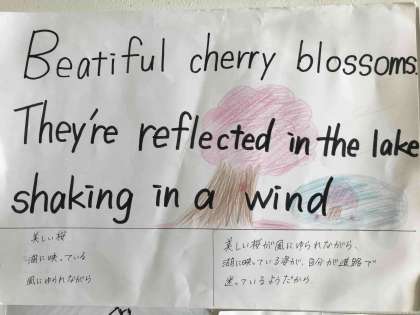 Beatiful cherry blossoms.
They're reflected in the lake
shaking in a wind
美しい桜
湖に映っている
風にゆられながら
美しい桜が風にゆられながら、
湖に映っている姿が、自分が進路で
迷っているようだから